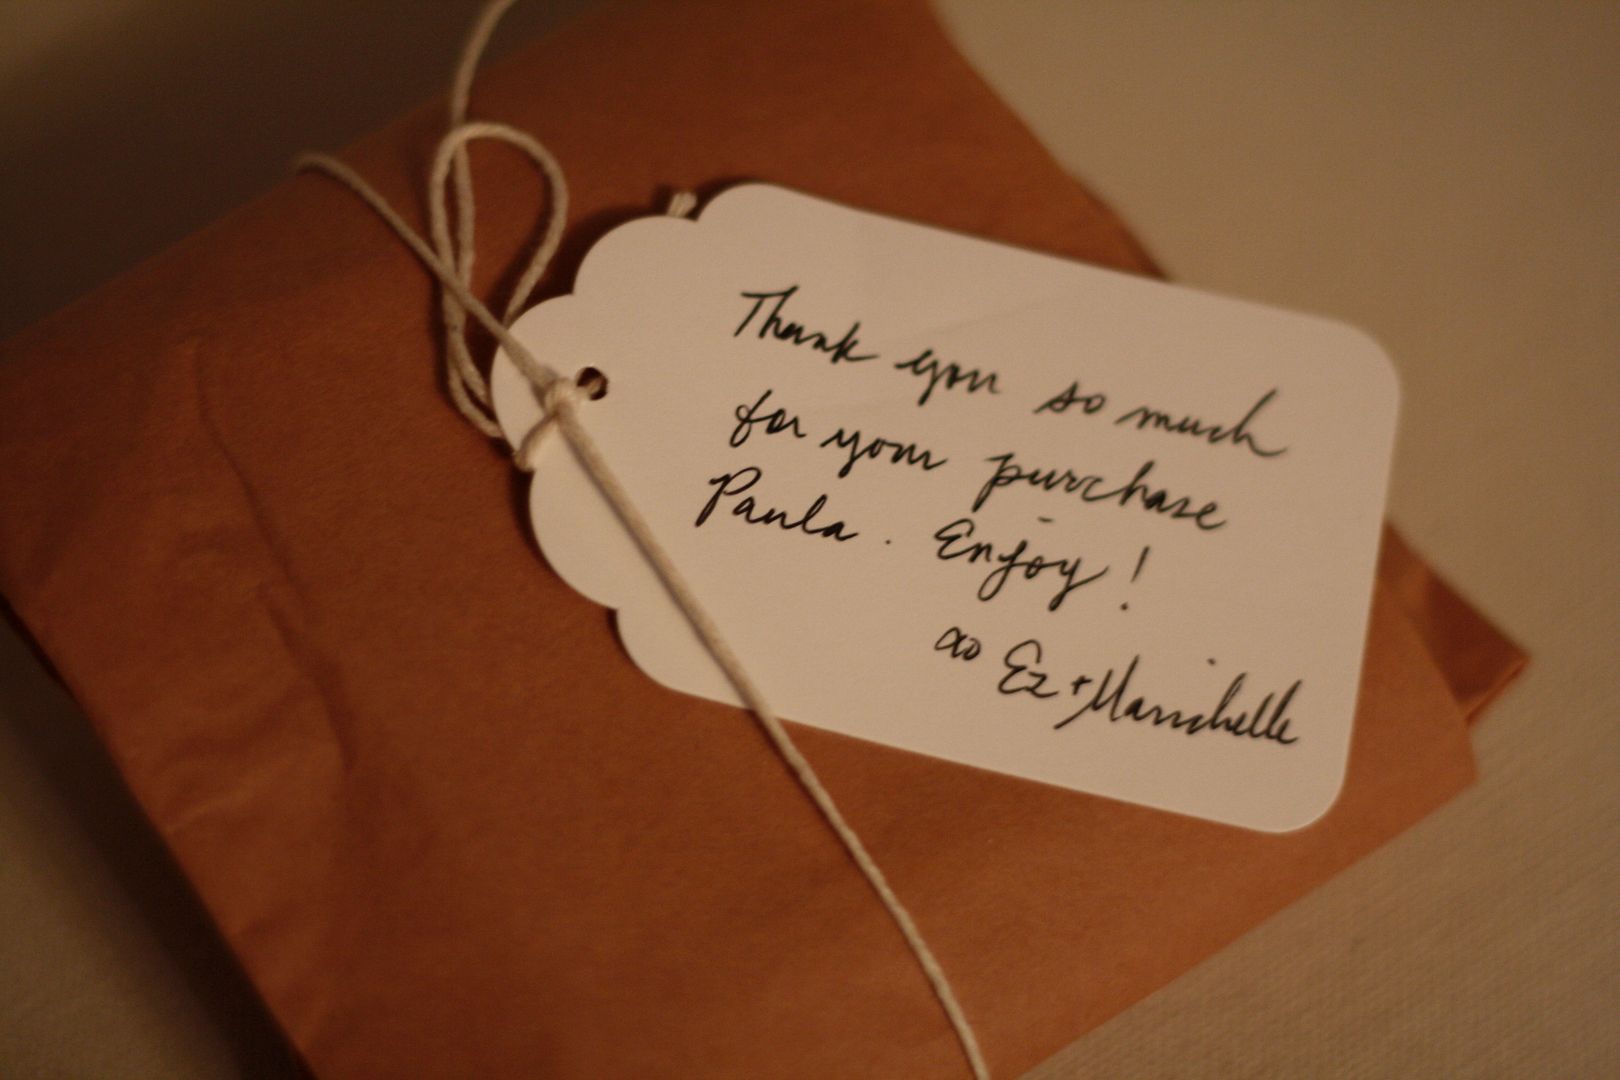 Thank you so much
for your purchase
Paula. Enjoy!
xo Ez + Marichelle